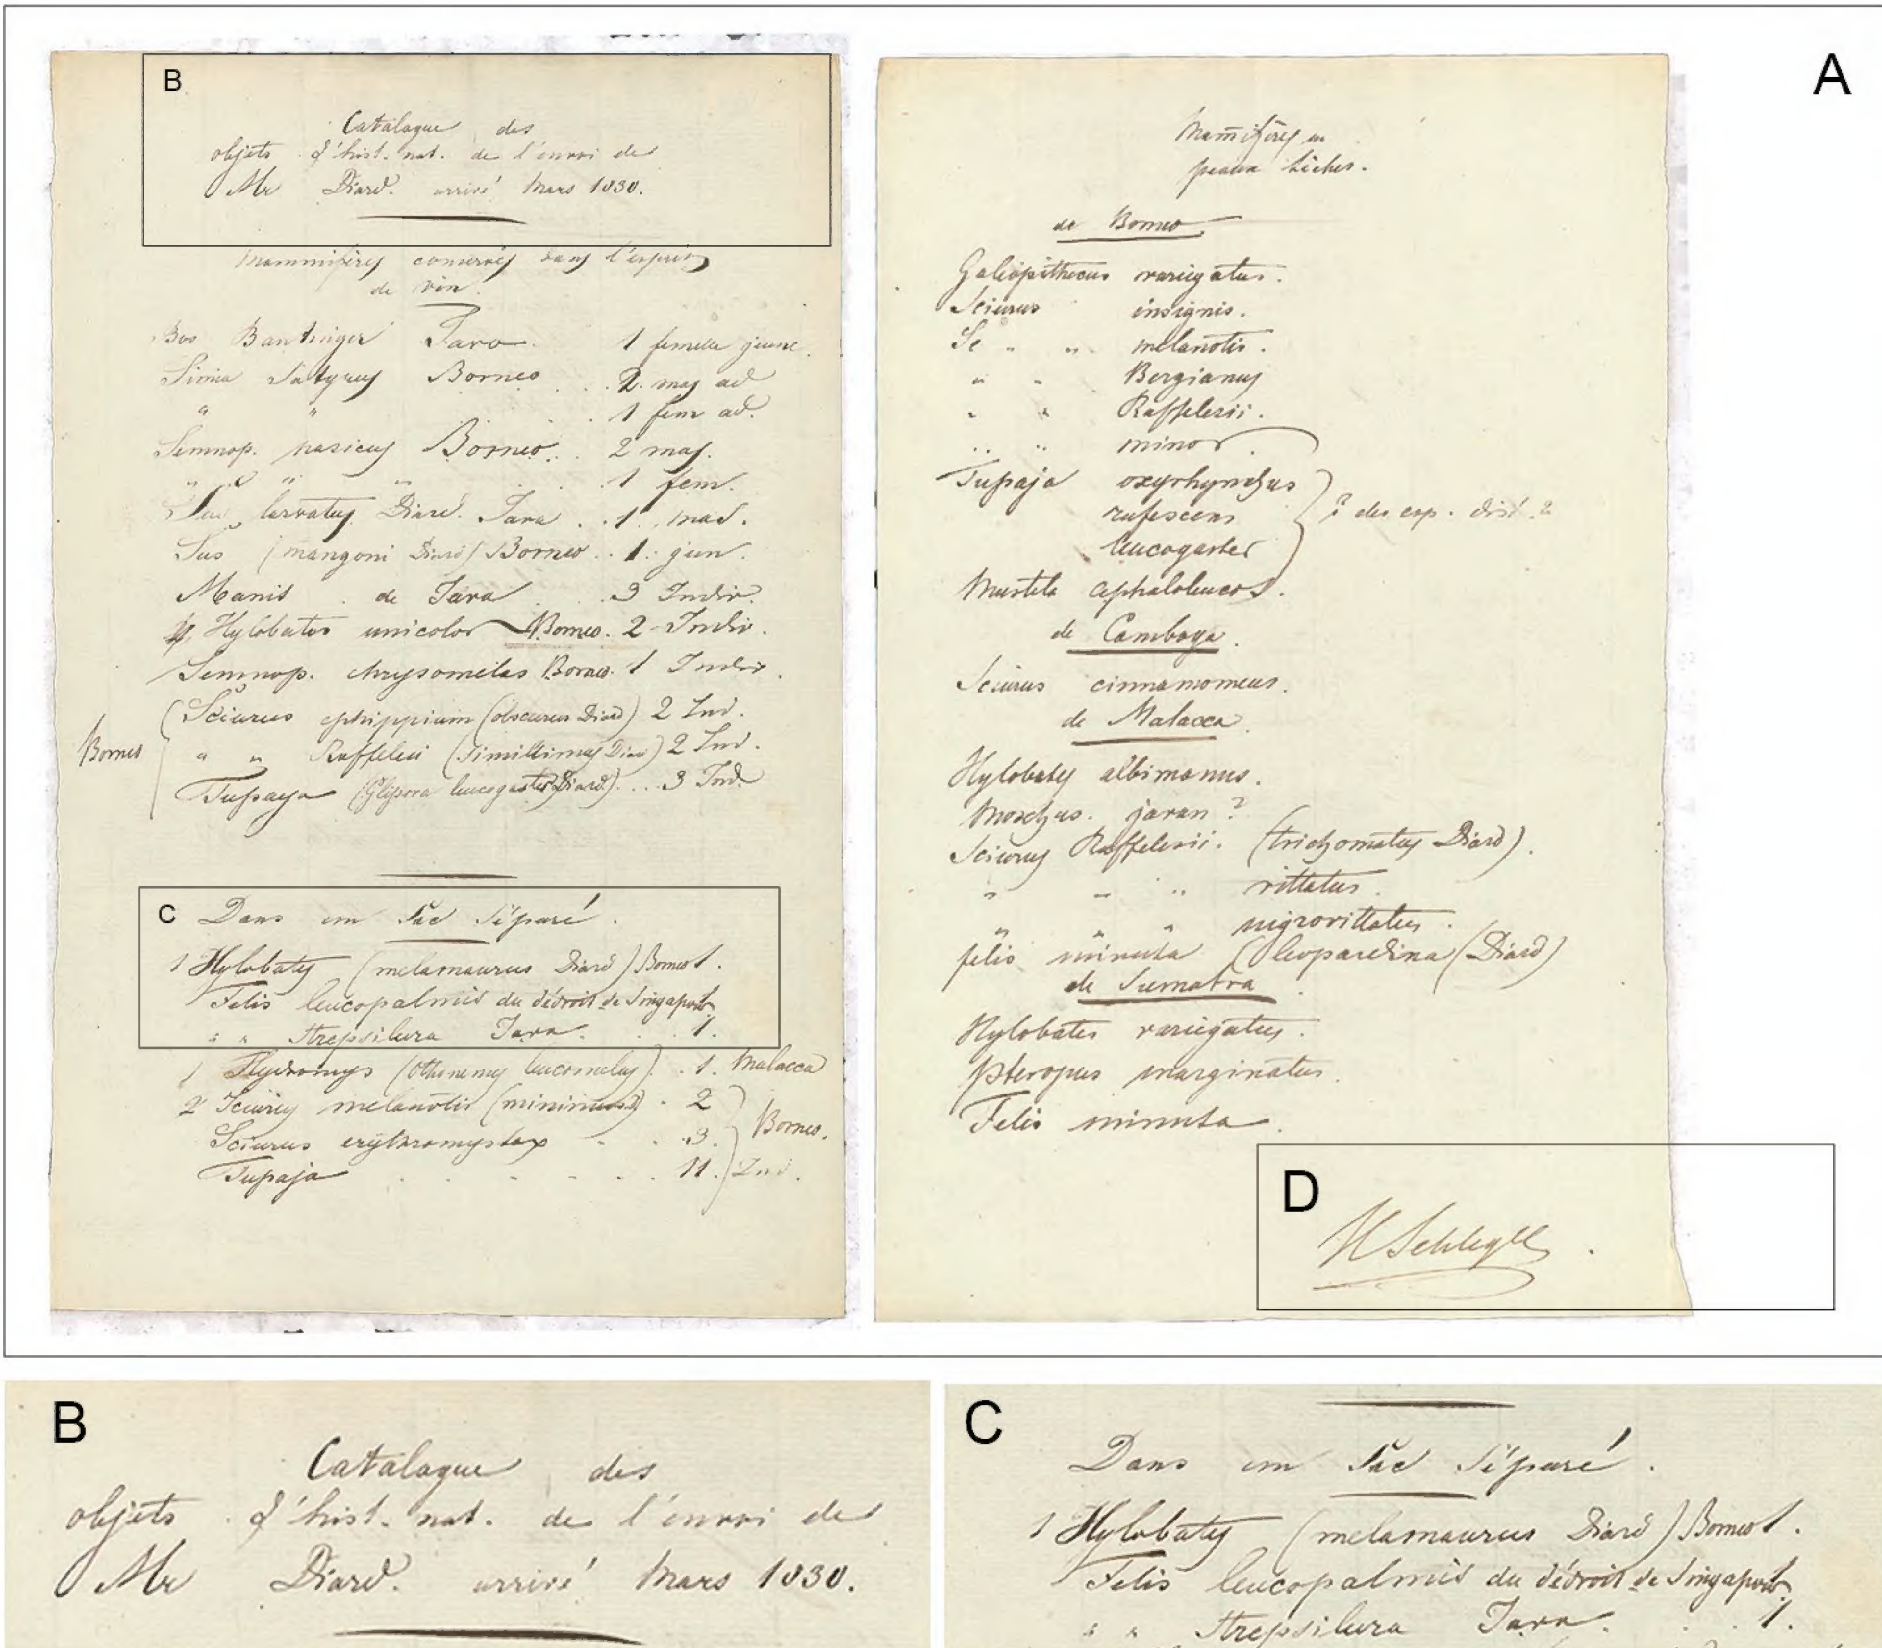 B
Catalogue des
objets d'hist. nat. de l'envoi de
Mr Diard. arrivé Mars 1830.
Mammifères conservés dans l'esprit
de vin.
Bos Bantinger Java. 1 femelle jeune.
Simia Satyrus Borneo . . 2. mas ad
" " . 1 fem ad.
Semnop. nasicus Borneo . . 2 mas.
" " " . . 1 fem.
larvatus Diard. Java . . 1. mas.
Sus (mangoni Diard) Borneo . . 1. jun.
Manis . de Java . . 3 Indiv.
Hylobates unicolor Borneo. 2 Indiv.
Semnop. chrysomelas Borneo. 1 Indiv.
Sciurus ephippium (obscurus Diard) 2 Ind.
Borneo " " Rafflesii (simillimus Diard) 2 Ind.
Tupaya (Glisora leucogaster Diard) . . . 3 Ind.
C
Dans un Sac Séparé.
1 Hylobates (melamaurus Diard) Borneo 1.
Felis leucopalmis du détroit de Singapore
" " Strepsilura Java . . 1.
1 Hydromys (leucomelas) . 1. Malacca
2 Sciurus melanotis (minimus) . 2
Sciurus erythromystax - . . 3. Borneo.
Tupaja . . - - - . . 11. Ind.
A
Mammifères en
peaux sèches.
de Borneo.
Galeopithecus variegatus.
Sciurus insignis.
Sc " " melanotis.
" " Bergianus
" " Rafflesii.
" " minor
Tupaja oxyrhynchus
rufescens ? des esp. dist. ?
leucogaster
Mustela cephaloleucos.
de Camboya.
Sciurus cinnamomeus.
de Malacca.
Hylobates albimanus.
Moschus. javan ?
Sciurus Rafflesii. (trichomatus Diard).
" " " vittatus.
" " " nigrovittatus.
felis minuta (leopardina (Diard)
de Sumatra.
Hylobates variegatus.
Pteropus marginatus.
Felis minuta.
D
H Schlegel.
B
Catalogue des
objets d'hist. nat. de l'envoi de
Mr Diard. arrivé Mars 1830.
C
Dans un Sac Séparé.
1 Hylobates (melamaurus Diard) Borneo 1.
Felis leucopalmis du détroit de Singapore
" " Strepsilura Java . . 1.